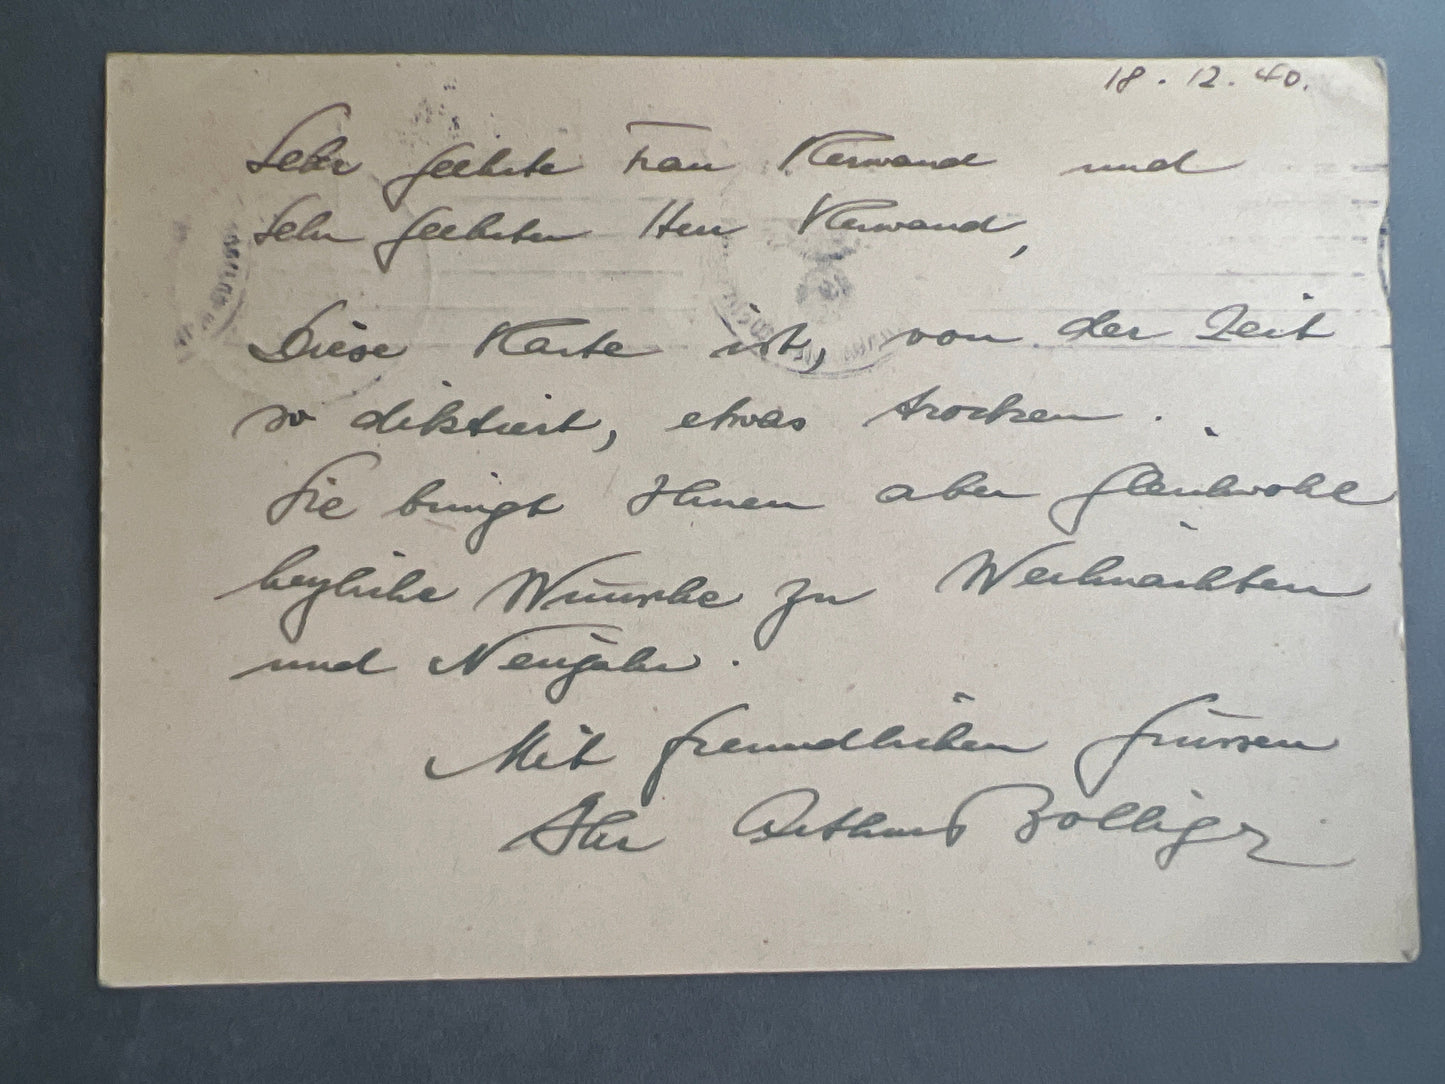 18.12.40.
Sehr geehrte Frau Kerwand und
Sehr geehrter Herr Kerwand,
Diese Karte ist, von der Zeit
so diktiert, etwas trocken.
Sie bringt Ihnen aber gleichwohl
herzliche Wünsche zu Weihnachten
und Neujahr.
Mit freundlichen Grüssen
Ihr Arthur Bolliger